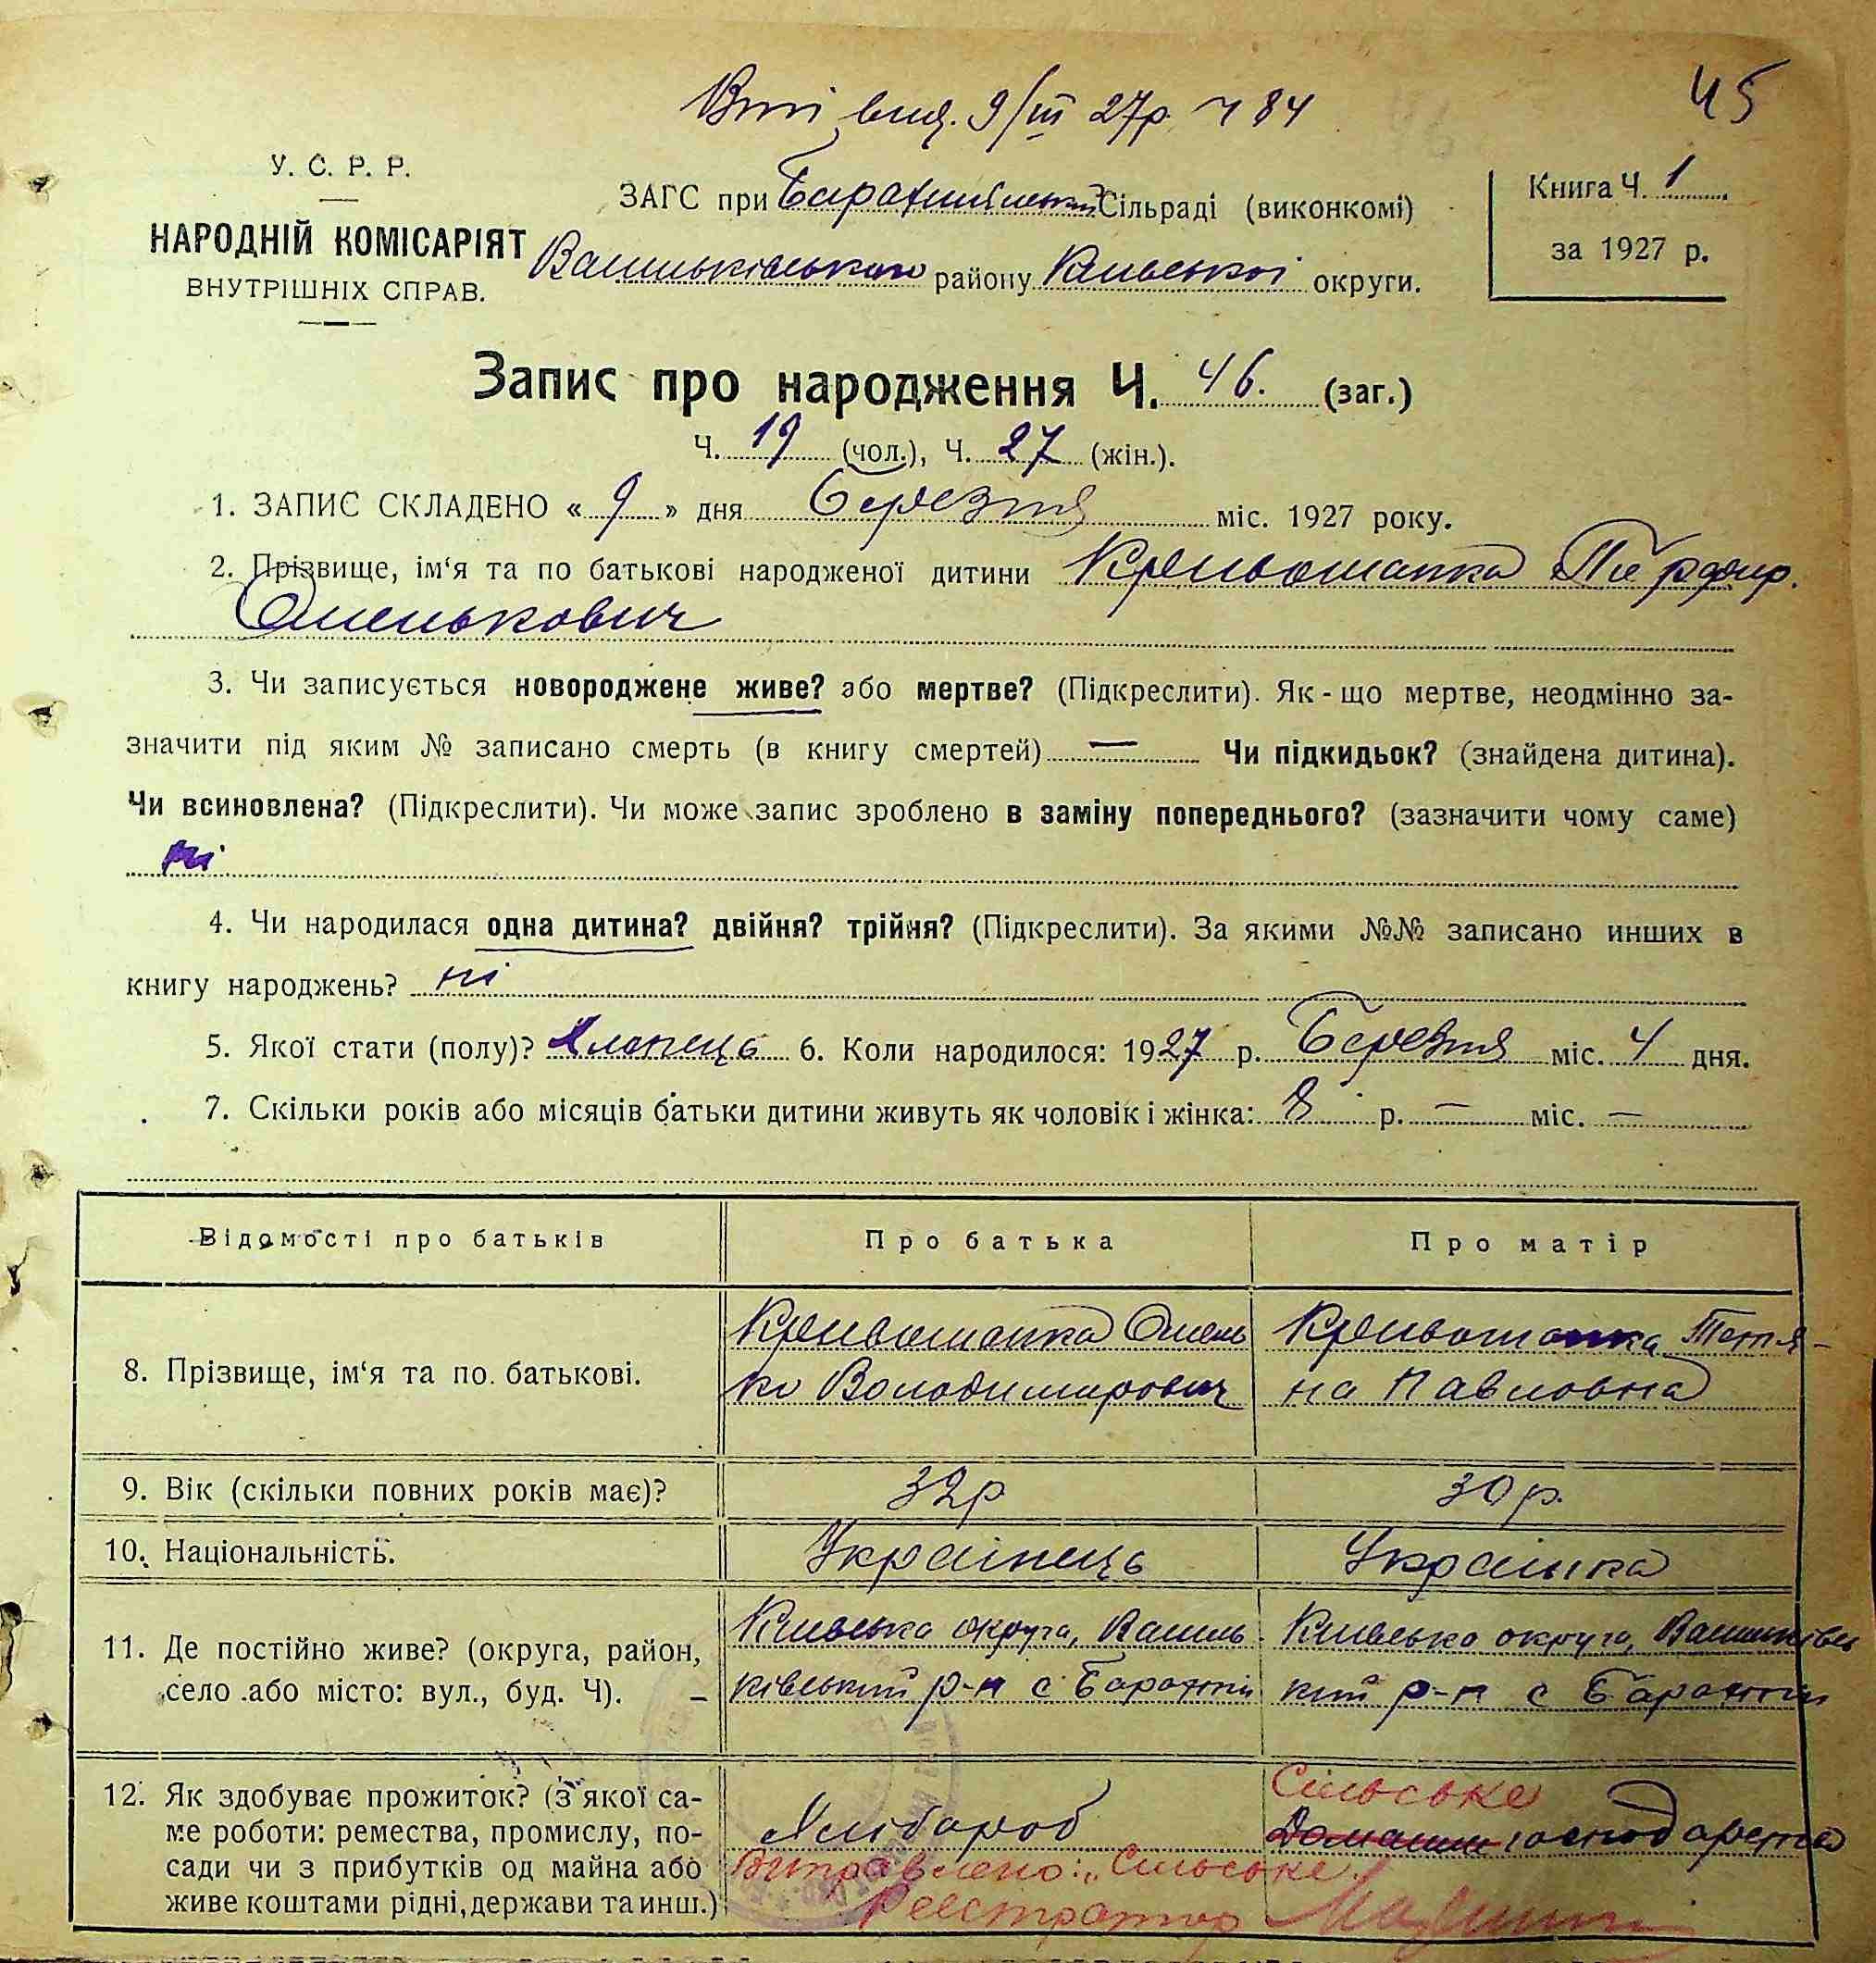 Вип. вид. 9/III 27р. ч 84
45
У. С. Р. Р.
НАРОДНІЙ КОМІСАРІЯТ
ВНУТРІШНІХ СПРАВ.
ЗАГС при Сільраді (виконкомі)
Васильківського району Київської округи.
Книга Ч. 1
за 1927 р.
Запис про народження Ч. 46. (заг.)
Ч. 19 (чол.), Ч. 27 (жін.).
1. ЗАПИС СКЛАДЕНО « 9 » дня Березня міс. 1927 року.
2. Прізвище, ім‘я та по батькові народженої дитини Кривошапка Порфир.
Омелькович
3. Чи записується новороджене живе? або мертве? (Підкреслити). Як-що мертве, неодмінно за-
значити під яким № записано смерть (в книгу смертей) — Чи підкидьок? (знайдена дитина).
Чи всиновлена? (Підкреслити). Чи може запис зроблено в заміну попереднього? (зазначити чому саме)
ні
4. Чи народилася одна дитина? двійня? трійня? (Підкреслити). За якими №№ записано инших в
книгу народжень? ні
5. Якої стати (полу)? Хлопець 6. Коли народилося: 1927 р. Березня міс. 4 дня.
7. Скільки років або місяців батьки дитини живуть як чоловік і жінка: 8 р. — міс. —
Відомості про батьків Про батька Про матір
8. Прізвище, ім‘я та по. батькові.
Кривошапка Омель
ко Володимирович
Кривошапка Тетя-
на Павловна
9. Вік (скільки повних років має)? 32р 30 р.
10. Національність. Українець Українка
11. Де постійно живе? (округа, район,
село або місто: вул., буд. Ч). –
Київська округа, Василь
ківський р-н с Барахти
Київська округа, Васильківсь
кий р-н с Барахти
12. Як здобуває прожиток? (з якої са-
ме роботи: ремества, промислу, по-
сади чи з прибутків од майна або
живе коштами рідні, держави та инш.)
Хлібороб
Сільське
Домашнє господарство
Виправлено: „Сільське
Реєстратор